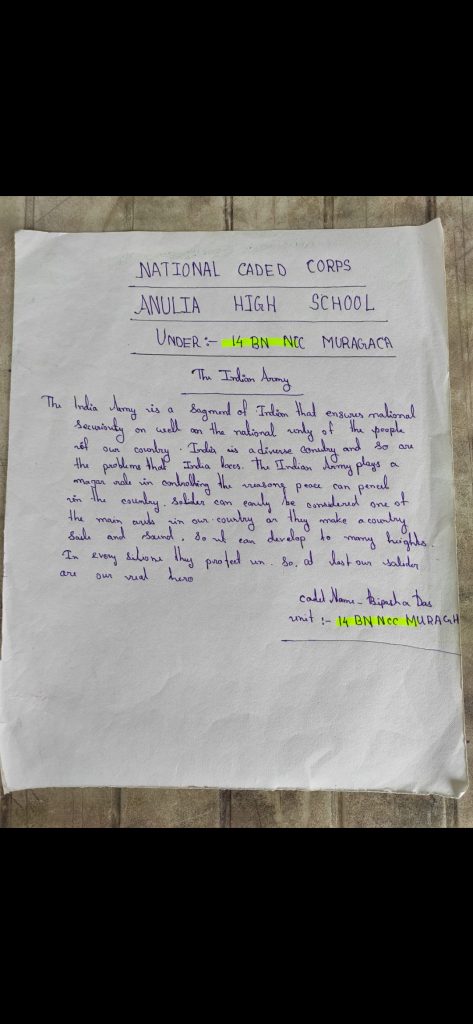 NATIONAL CADED CORPS
ANULIA HIGH SCHOOL
UNDER :- 14 BN NCC MURAGACA
The Indian Army
The India Army is a Sagment of Indian that ensures national
Securindy on well on the national unty of the people
of our country. India is a diverse country and so are
the problems that India faces. The Indian Army plays a
magar role in controlling the reasons peace can
in the country. Solider can easily be considered one of
the main in our country as they make a country
Safe and Saund. So it can develop to many heights.
In every they protect us. So, at last our solider
are our real hero
cadet Name - Bipasha Das
unit :- 14 BN NCC MURAGH